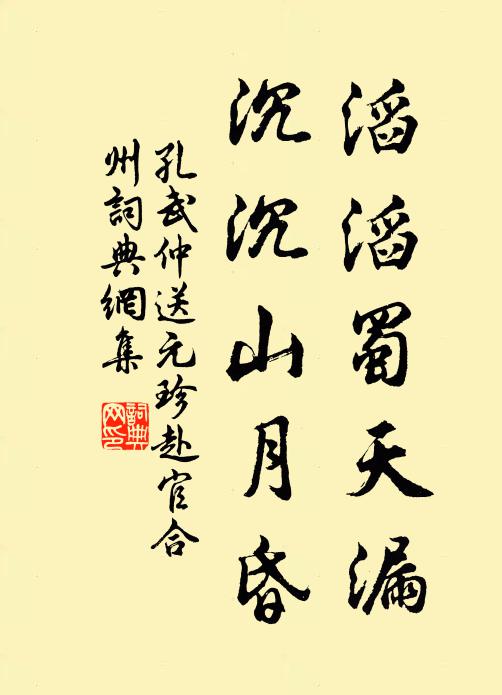 滔滔蜀天漏
沉沉山月昏
孔武仲送元珍赴官合
州詞典網集
詞典网印